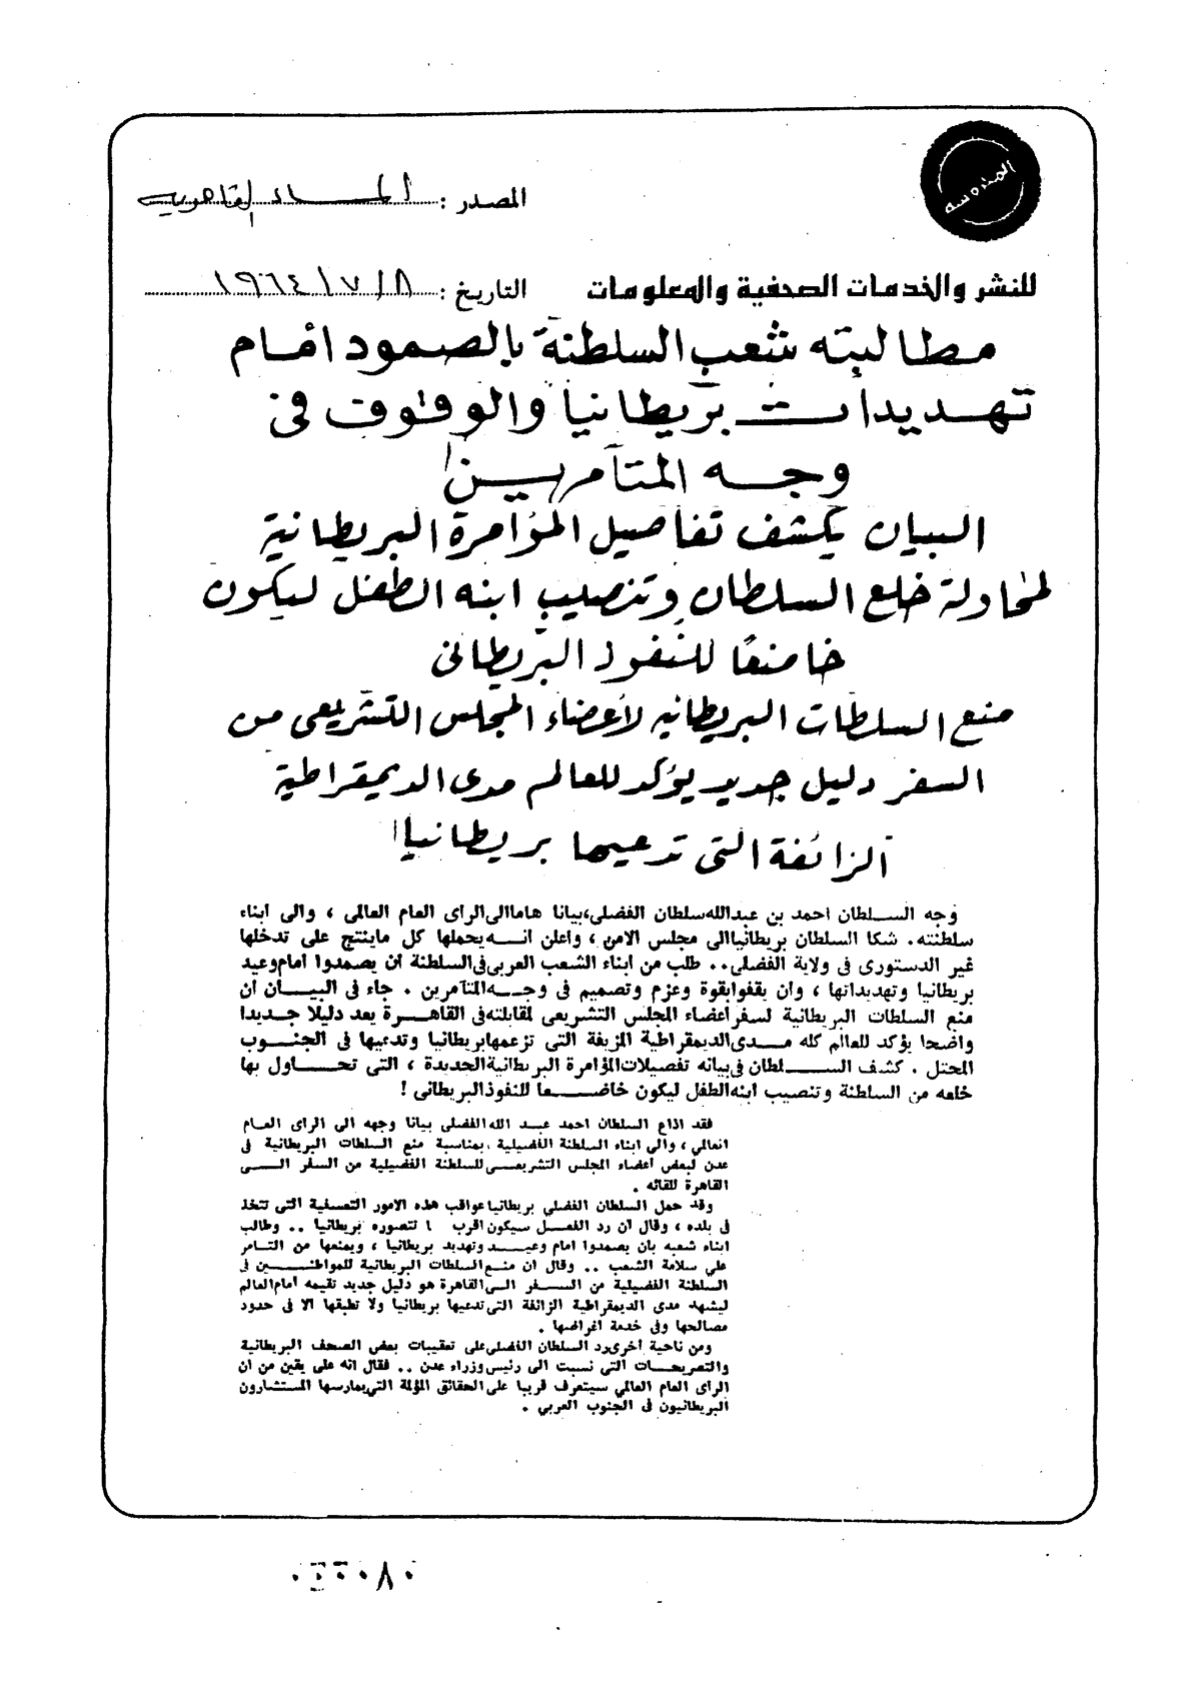 المصدر : المساء القاهرية
للنشر والخدمات الصحفية والمعلومات
التاريخ : ١٩٦٤/٧/٨
مطالبته شعب السلطنة بالصمود امام
تهديدات بريطانيا والوقوف فى
وجه المتآمرين!
البيان يكشف تفاصيل المؤامرة البريطانية
لمحاولة خلع السلطان وتنصيب ابنه الطفل ليكون
خاضعًا للنفوذ البريطانى
منع السلطات البريطانيه لأعضاء المجلس التشريعى من
السفر دليل جديد يؤكد للعالم مدى الديمقراطية
الزائفة التى تدعيها بريطانيا!
وجه السلطان احمد بن عبدالله سلطان الفضلى، بيانا هاما الى الراى العام العالى ، والى ابناء
سلطنته. شكا السلطان بريطانيا الى مجلس الامن ، واعلن انه يحملها كل ماينتج على تدخلها
غير الدستورى فى ولاية الفضلى.. طلب من ابناء الشعب العربى فى السلطنة ان يصمدوا امام وعيد
بريطانيا وتهديداتها ، وان يقفوا بقوة وعزم وتصميم فى وجه المتآمرين . جاء فى البيان ان
منع السلطات البريطانية لسفر اعضاء المجلس التشريعى لمقابلته فى القاهرة يعد دليلا جديدا
واضحا يؤكد للعالم كله مدى الديمقراطية المزيفة التى تزعمها بريطانيا وتدعيها فى الجنوب
المحتل . كشف السلطان فى بيانه تفصيلات المؤامرة البريطانية الجديدة ، التى تحاول بها
خلعه من السلطنة وتنصيب ابنه الطفل ليكون خاضعا للنفوذ البريطانى !
فقد اذاع السلطان احمد عبد الله الفضلى بيانا وجهه الى الراى العام
العالي ، والى ابناء السلطنة الفضيلية ، بمناسبة منع السلطات البريطانية فى
عدن لبعض اعضاء المجلس التشريعى للسلطنة الفضيلية من السفر الى
القاهرة للقائه .
وقد حمل السلطان الفضلى بريطانيا عواقب هذه الامور التعسفية التى تتخذ
فى بلده ، وقال ان رد الفعل سيكون اقرب مما تتصوره بريطانيا .. وطالب
ابناء شعبه بان يصمدوا امام وعيد وتهديد بريطانيا ، ويمنعها من التامر
على سلامة الشعب .. وقال ان منع السلطات البريطانية للمواطنين فى
السلطنة الفضيلية من السفر الى القاهرة هو دليل جديد تقيمه امام العالم
ليشهد مدى الديمقراطية الزائفة التى تدعيها بريطانيا ولا تطبقها الا فى حدود
مصالحها وفى خدمة اغراضها .
ومن ناحية اخرى رد السلطان الفضلى على تعقيبات بعض الصحف البريطانية
والتصريحات التى نسبت الى رئيس وزراء عدن .. فقال انه على يقين من ان
الراى العام العالمي سيتعرف قريبا على الحقائق المؤلمة التى يمارسها المستشارون
البريطانيون فى الجنوب العربي .